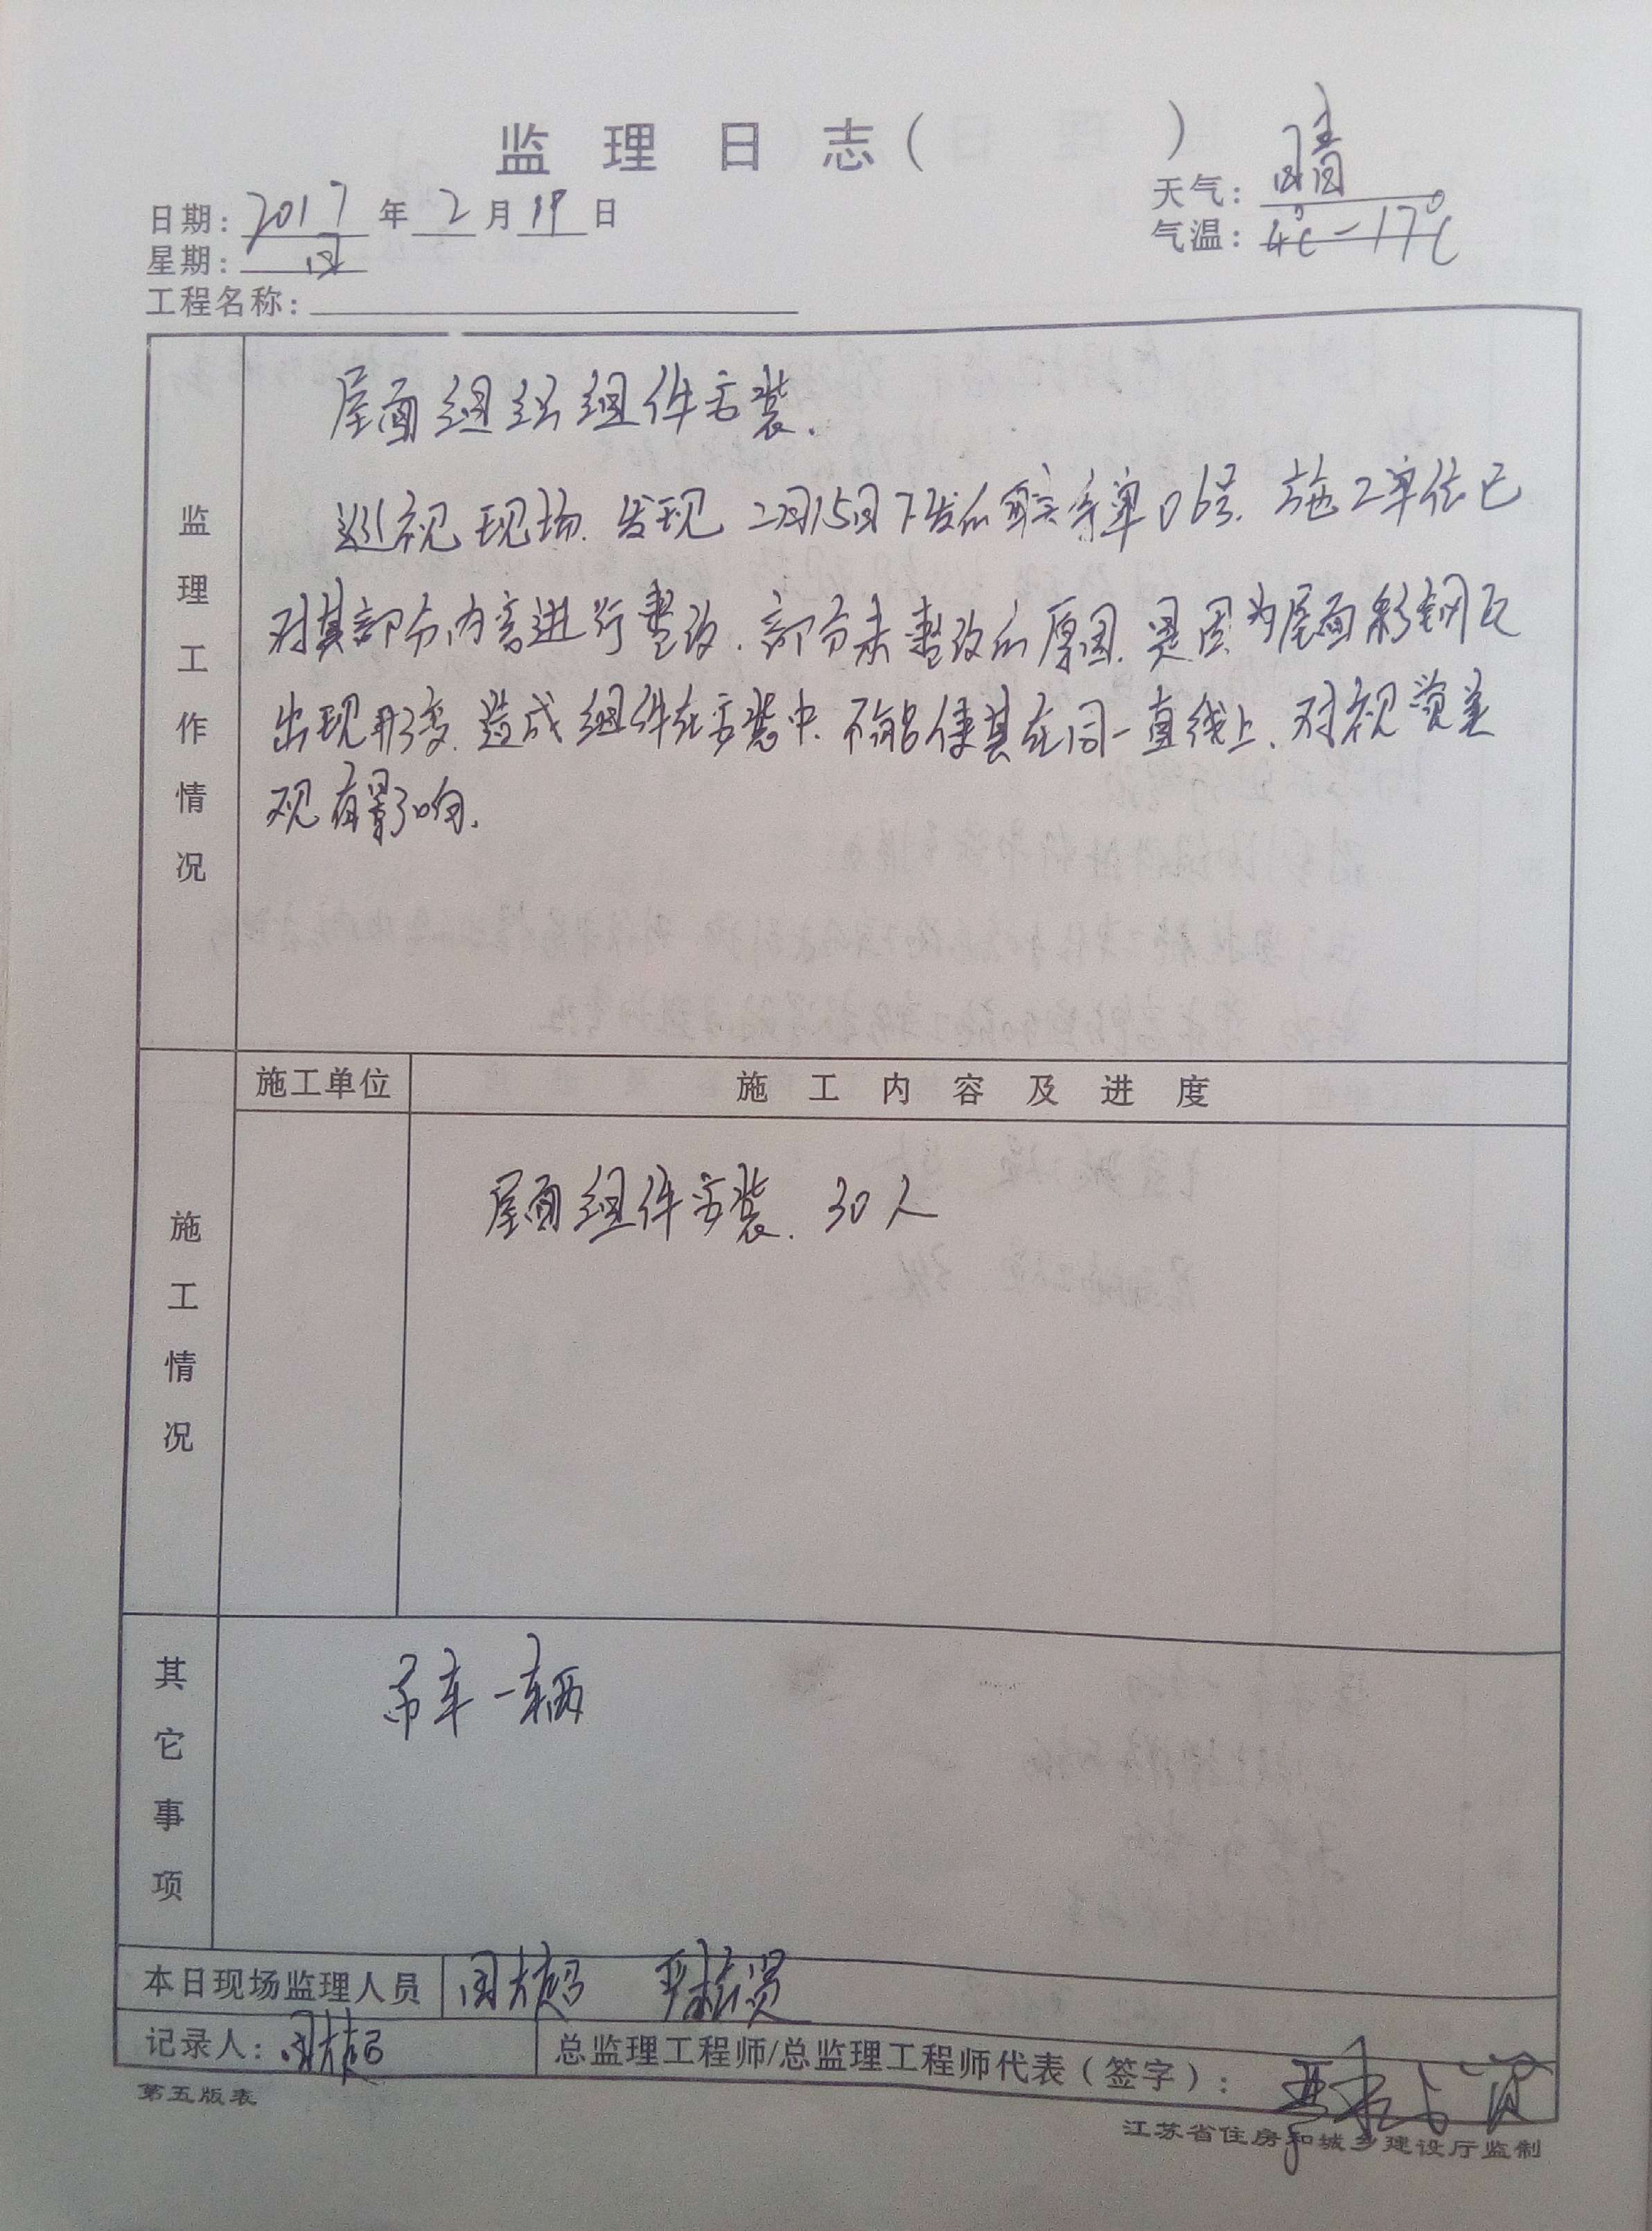 监理日志( )
天气: 晴
日期: 2017年2月19日
气温: 4℃-17℃
星期: 日
工程名称:
监理工作情况
屋面组织组件安装.
巡视现场.发现2月15日下发的联系单06号.施工单位已
对其部分内容进行整改.部分未整改的原因.是因为屋面彩钢瓦
出现形变.造成组件在安装中.不能使其在同一直线上.对视觉美
观有影响.
施工单位 施工内容及进度
施工情况
屋面组件安装.30人
其它事项
吊车一辆
本日现场监理人员
记录人:
总监理工程师/总监理工程师代表(签字):
第五版表
江苏省住房和城乡建设厅监制